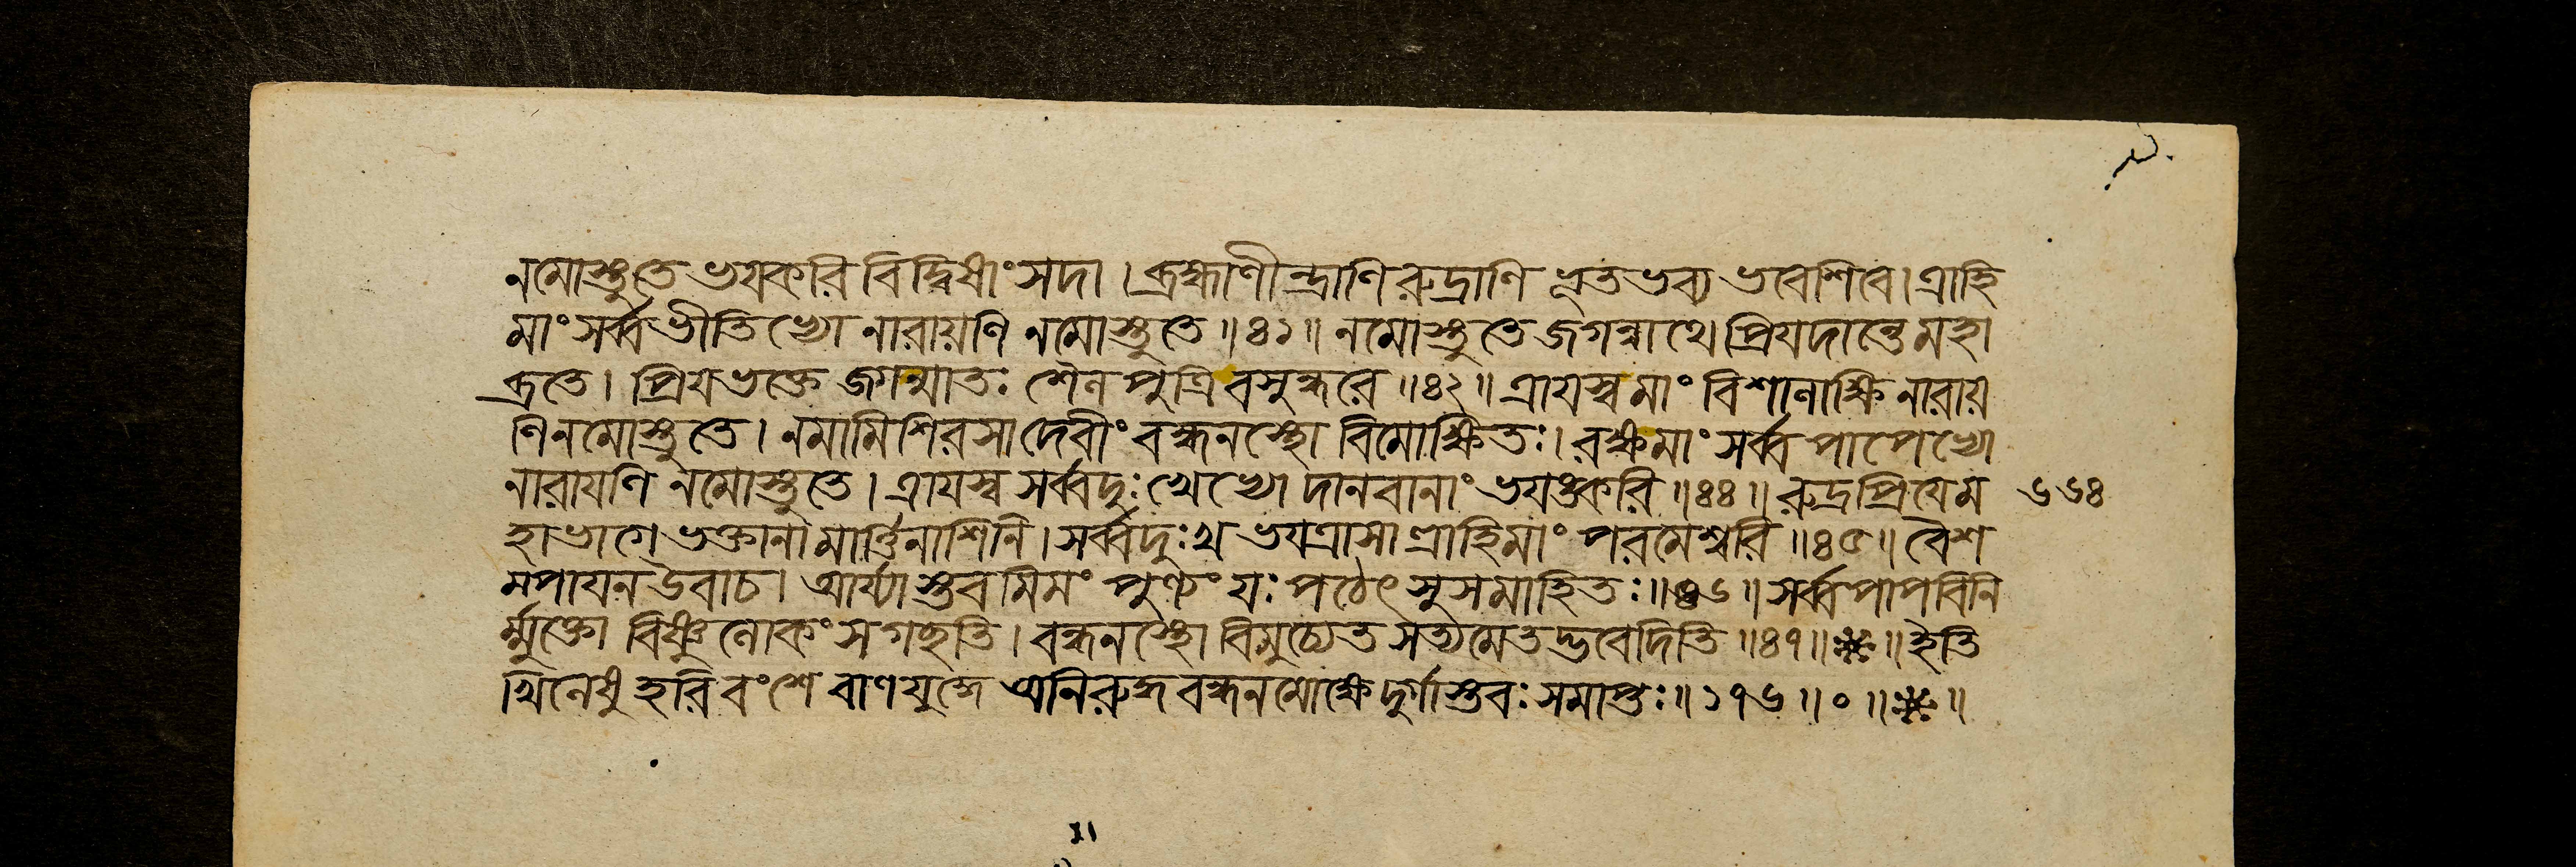 নমোস্তুতে ভয়করি বিদ্বিষাং সদা। ব্রহ্মাণীন্দ্রাণি রুদ্রাণি ভূতভব্য ভবেশিবে। ত্রাহি
মাং সর্ব্বভীতিভ্যো নারায়ণি নমোস্তুতে॥৪১॥ নমোস্তুতে জগন্নাথে প্রিয়দান্তে মহা
ব্রতে। প্রিয়ভক্তে জগন্মাতঃ শৈল পুত্রি বসুন্ধরে॥৪২॥ ত্রায়স্ব মাং বিশালাক্ষি নারায়
ণি নমোস্তুতে। নমামি শিরসা দেবীং বন্ধনস্থো বিমোক্ষিতঃ। রক্ষ মাং সর্ব্ব পাপেভ্যো
নারায়ণি নমোস্তুতে। ত্রায়স্ব সর্ব্বদুঃখেভ্যো দানবানাং ভয়ঙ্করি॥৪৪॥ রুদ্রপ্রিয়ে ম ৬৬৪
হাভাগে ভক্তানামার্ত্তিনাশিনি। সর্ব্বদুঃখ ভয়ত্রাসা ত্রাহিমাং পরমেশ্বরি॥৪৫॥ বৈশ
ম্পায়ন উবাচ। আর্য্যাস্তবমিমং পুণ্যং যঃ পঠেৎ সুসমাহিতঃ॥৪৬॥ সর্ব্বপাপবিনি
র্ম্মুক্তো বিষ্ণুলোকং স গচ্ছতি। বন্ধনস্থো বিমুচ্যেত সত্যমেতদ্ভবেদিতি॥৪৭॥ ॥ ইতি
খিলেষু হরিবংশে বাণযুদ্ধে অনিরুদ্ধ বন্ধনমোক্ষে দুর্গাস্তবঃ সমাপ্তঃ॥১৭৬॥০॥ ॥